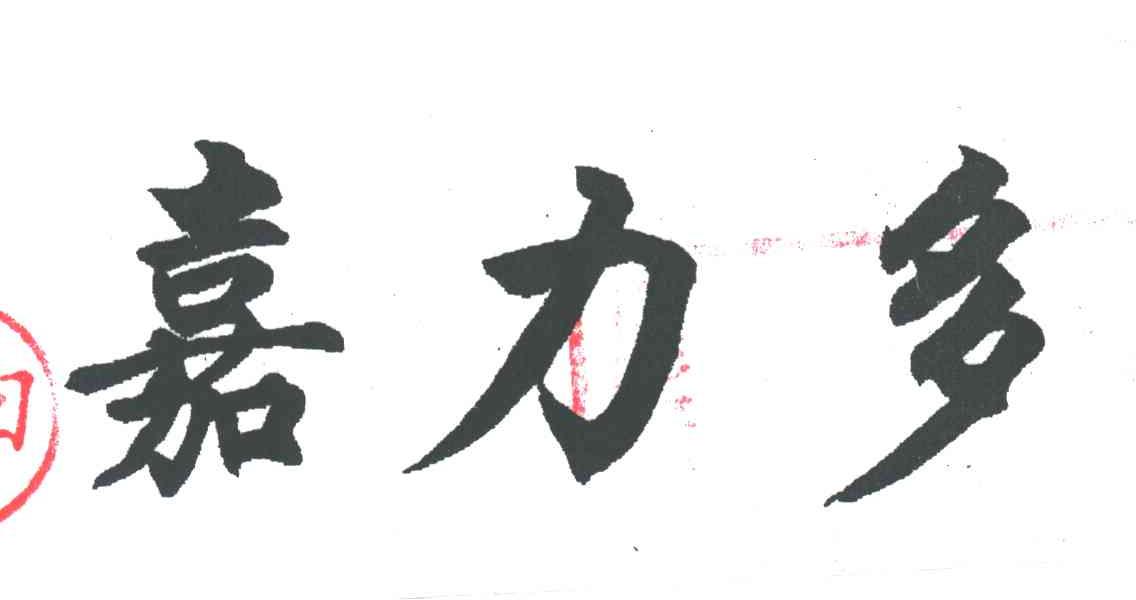 嘉力多